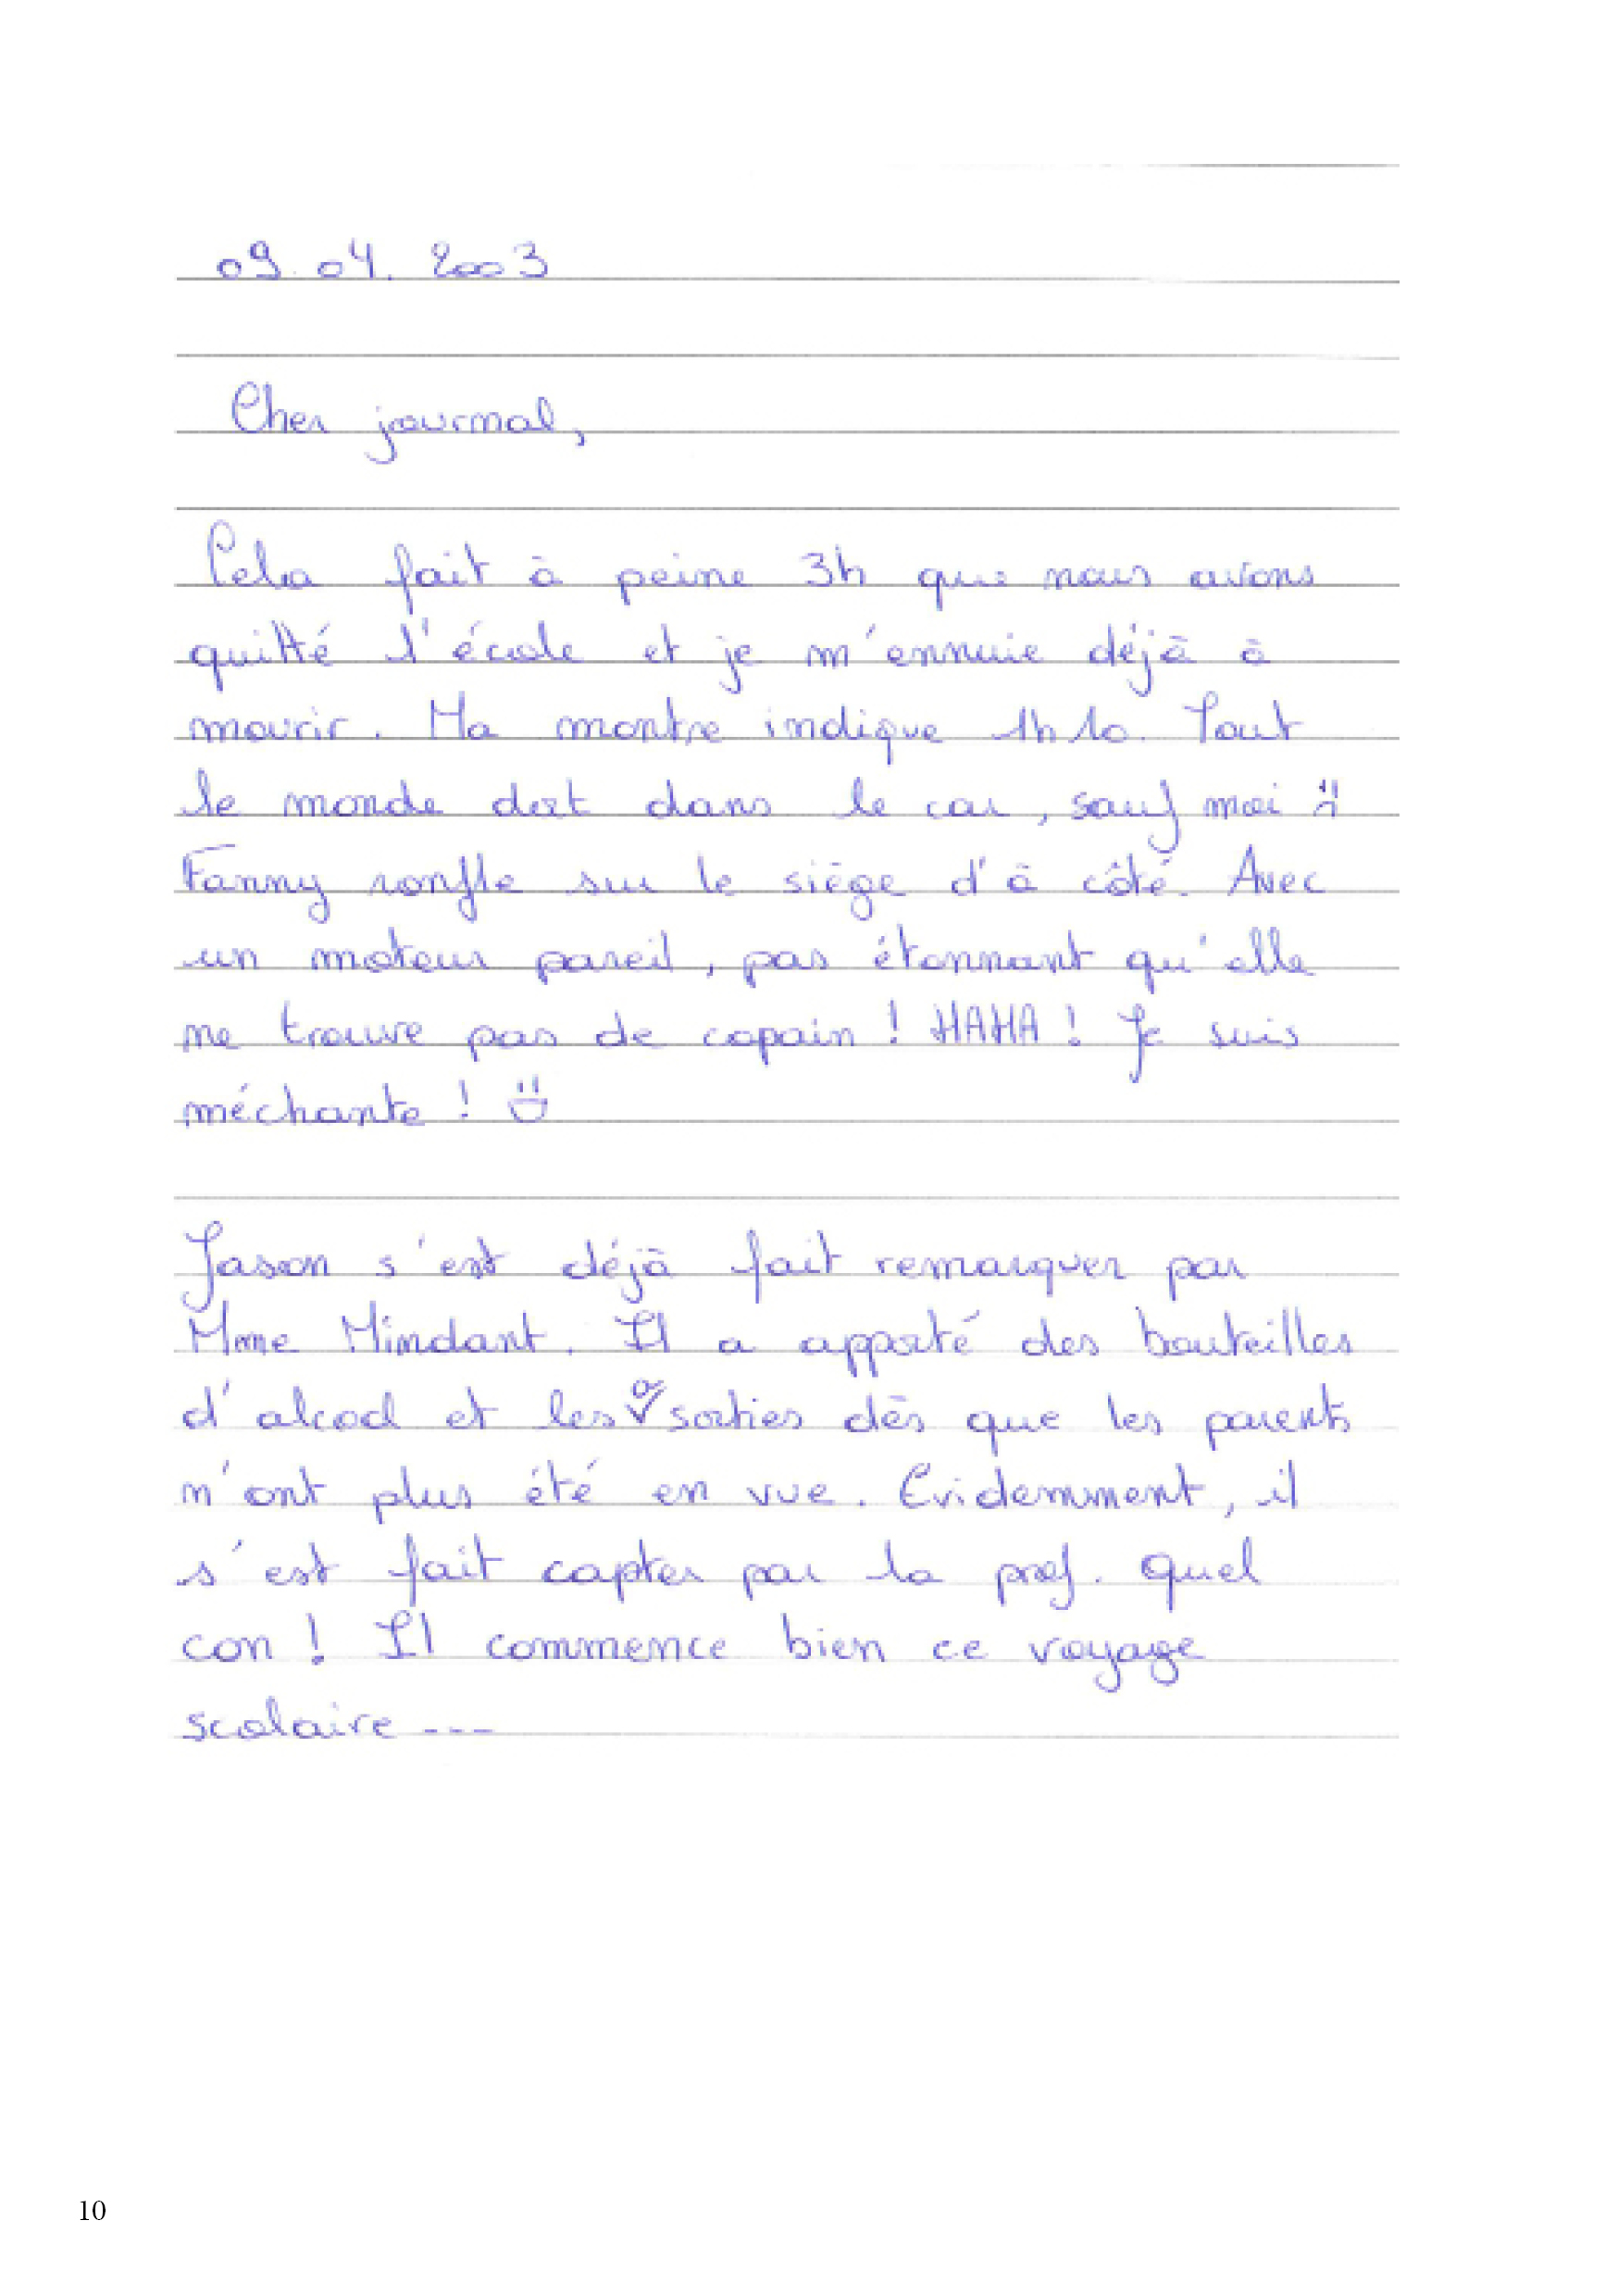 09.04.2003
Cher journal,
Cela fait à peine 3h que nous avons
quitté l'école et je m'ennuie déjà à
mourir. Ma montre indique 1h10. Tout
le monde dort dans le car, sauf moi :(
Fanny ronfle sur le siège d'à côté. Avec
un moteur pareil, pas étonnant qu'elle
ne trouve pas de copain ! HAHA ! Je suis
méchante ! :D
Jason s'est déjà fait remarquer par
Mme Mindant. Il a apporté des bouteilles
d'alcool et les a sorties dès que les parents
n'ont plus été en vue. Evidemment, il
s'est fait capter par la prof. Quel
con ! Il commence bien ce voyage
scolaire ---
10